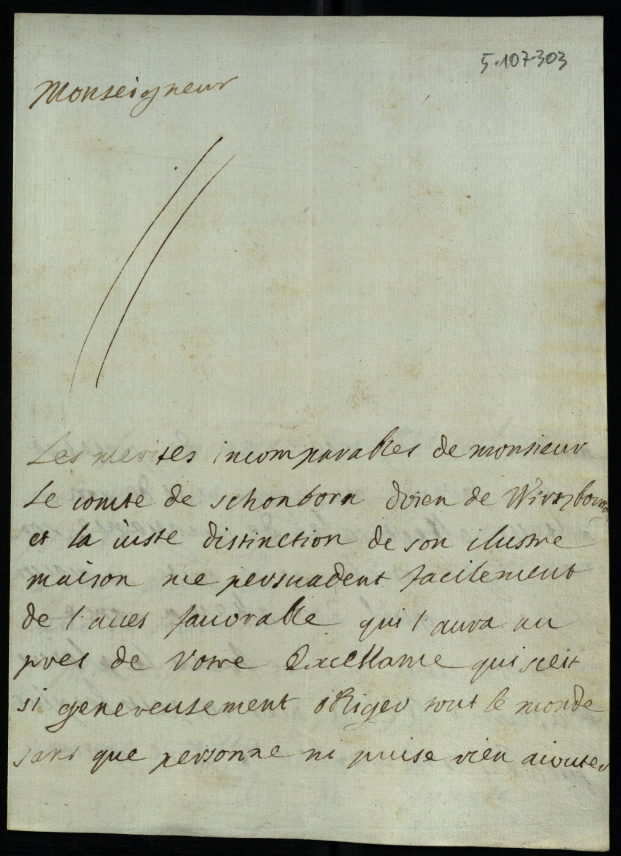 5-107-303
Monseigneur
Les merites incomparables de monsieur
Le comte de schonborn doien de Wirtzbourg
et la iuste distinction de son ilustre
maison me persuadent facilement
de l'acces favorable qui l'aura au
pres de Votre Excellance qui sceit
si genereusement obliger tout le monde
sans que personne ni puise rien aiouter